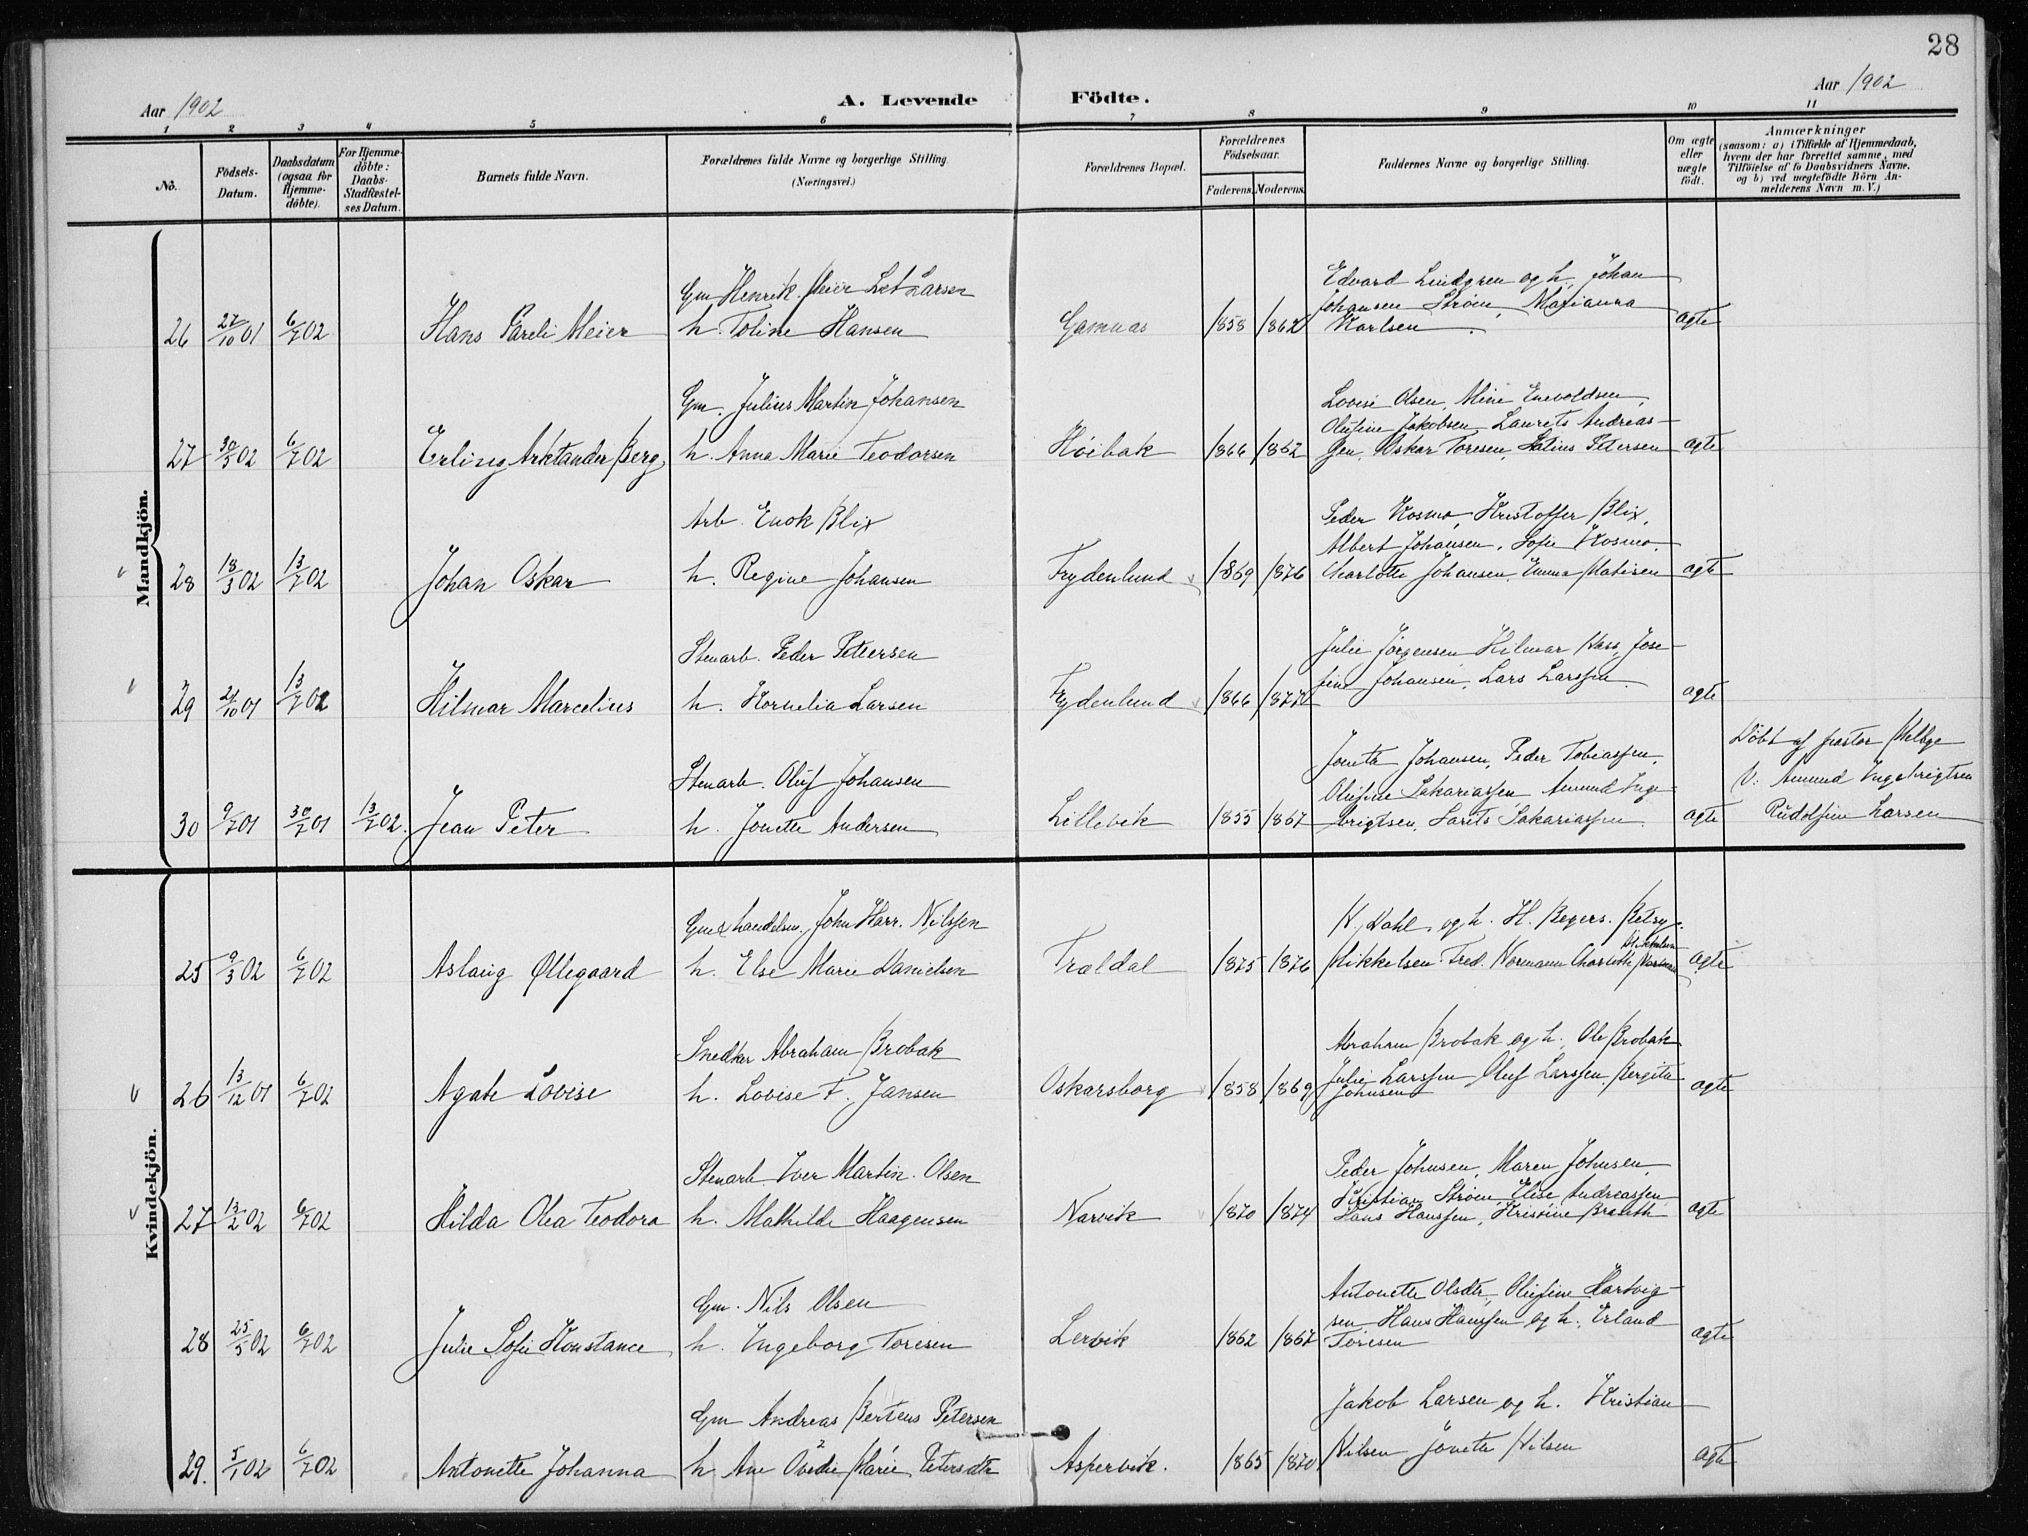 28
Aar 1902
A. Levende Födte.
Aar 1902
1 2 3 4 5 6 7 8 9 10 11
No.
Födsels-Datum.
Daabsdatum (ogsaa for Hjemme-döbte).
For Hjemme-döbte: Daabs-Stadfæstel-ses Datum.
Barnets fulde Navn.
Forældrenes fulde Navne og borgerlige Stilling.
(Næringsvei.)
Forældrenes Bopæl.
Forældrenes Födselsaar.
Faderens. Moderens.
Faddernes Navne og borgerlige Stilling.
Om ægte eller uægte födt.
Anmærkninger
(saasom: a) i Tilfælde af Hjemmedaab, hvem der har forrettet samme, med Tilföielse af to Daabsvidners Navne, og b) ved uægtefödte Börn An-melderens Navn m. V.)
Mandkjön.
Edvard Lindgren og h. Johan
Gm Henrik Meier Larsen
Johansen Strøm, Matiaura
26 27/10 01 6/7 02 Hans Pareli Meier h. Toline Hansen Gamnas 1858 1862 Karlsen. ægte
Lovise Olsen, Mine Enevoldsen,
Gm. Julius Martin Johansen
Olufine Jakobsen Laurits Andreas-
27 30/5 02 6/7 02 Erling Arktander Berg h. Anna Marie Teodorsen Høibak 1866 1862 sen, Oskar Toresen, Petersen ægte
Peder Kosmo, Kristoffer Blix,
Arb. Enok Blix
Albert Johansen, Sofie Kosmo,
28 18/3 02 13/7 02 Johan Oskar h. Regine Johansen Frydenlund 1869 1876 Charlotte Johansen, Emma Matisen ægte
Julie Jørgensen Hilmar Hass, Jose-
Stenarb. Peder Pettersen
fine Johansen, Lars Larssen.
29 21/10 01 13/7 02 Hilmar Marcelius h. Kornelia Larsen Frydenlund 1866 1877 ægte
Døbt af pastor Melbye
Jonetta Johansen, Peder Tobiassen,
Stenarb. Oluf Johansen
V: Amund Ingebrigtsen
Olufine Sakariassen Amund Inge-
30 9/7 01 30/7 01 13/7 02. Jean Peter h. Jonette Andersen Lillevik 1855 1867 brigtsen, Sakariassen. ægte Rudolfine Larsen
Kvindekjön.
N. Dahl og h. H. Begers. Betsy
Gm & handelsm. John Harr. Nilssen
Mikkelsen
25 9/3 02 6/7 02 Aslaug Øllegaard h. Else Marie Danielsen Trældal 1875 1876 Mikkelsen Fred. Normann Charloth ægte
Abraham Brobak og h. Ole Brobak
Snedker Abraham Brobak
Julie Larssen Oluf Larssen. Bergita
26 13/12 01 6/7 02 Agate Lovise h. Lovise F. Jansen Oskarsborg 1858 1869 Johnsen ægte
Peder Johnsen, Maren Johnsen,
Stenarb Iver Martin Olsen
Kristian Strøm, Elise Andreassen
27 13/2 02 6/7 02 Hilda Olea Teodora h. Mathilde Haagensen Narvik 1870 1874 Hans Hanssen, Kristine ægte
Antonette Olsdtr, Olufine Hartvig-
Gm. Nils Olsen
sen Hans Hanssen og h., Erland
28 25/5 02 6/7 02 Julie Sofie Konstance h. Ingeborg Toresen Lervik 1862 1867 Toresen ægte
Jakob Larsen og h. Kristian
Gm Andreas Berteus Petersen
29. 5/1 02 6/7 02 Antonette Johanna h. Ane Ovedie Marie Petersdtr Aspervik. 1865 1870 Nilsen Jonetta Nilsen ægte